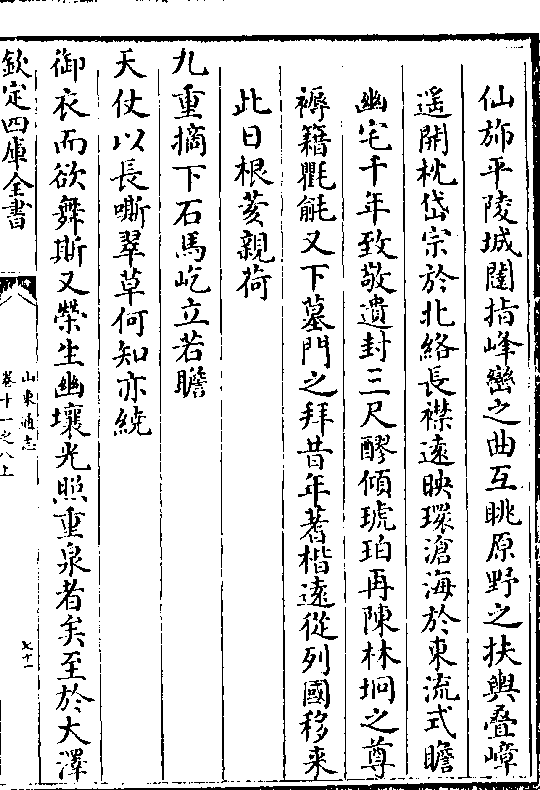 仙斾平陵城闉指峰巒之曲互眺原野之扶輿疊嶂
遥開枕岱宗於北絡長襟遠映環滄海於東流式瞻
幽宅千年致敬遺封三尺醪傾琥珀再陳林坰之尊
褥籍氍毹又下墓門之拜昔年蓍楷遠從列國移来
此日根荄親荷
九重摘下石馬屹立若瞻
天仗以長嘶翠草何知亦繞
御衣而欲舞斯又榮生幽壤光照重泉者矣至於大澤
欽定四庫全書
山東通志
卷十一之八上
七十一